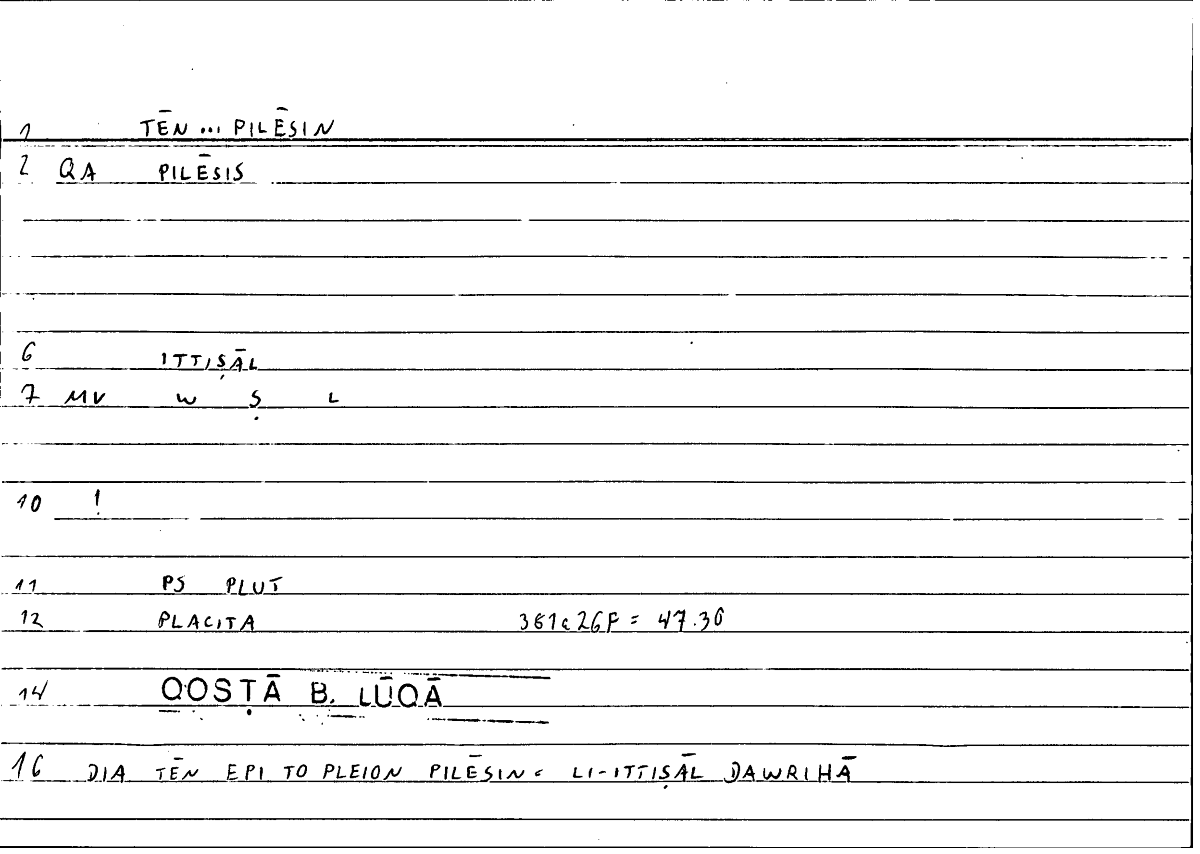 1 TĒN ... PILĒSIN
2 QA PILĒSIS
6 ITTIṢĀL
7 MV W Ṣ L
10 !
11 PS PLUT
12 PLACITA = 47.30
14 QOSṬĀ B. LŪQĀ
16 DIA TĒN EPI TO PLEION PILĒSIN = LI-ITTIṢĀL DAWRIHĀ